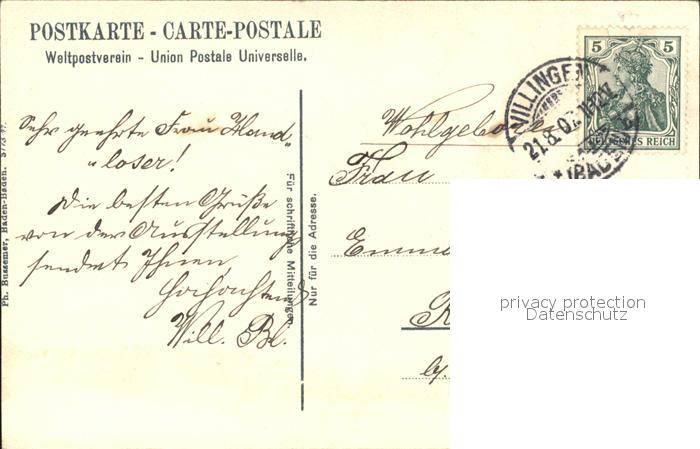 POSTKARTE - CARTE-POSTALE
Weltpostverein - Union Postale Universelle.
Sehr geehrte Frau Hand„
„loser!
Die besten Grüße
von der Ausstellung
sendet Ihnen,
Hochachtend
Will. Bl.
Ph. Bussemer, Baden-Baden.
Für schriftliche Mitteilungen
Nur für die Adresse.
Wohlgeboren
Frau
VILLINGEN
21.8.07
(BADEN)
5 5
DEUTSCHES REICH
privacy protection
Datenschutz